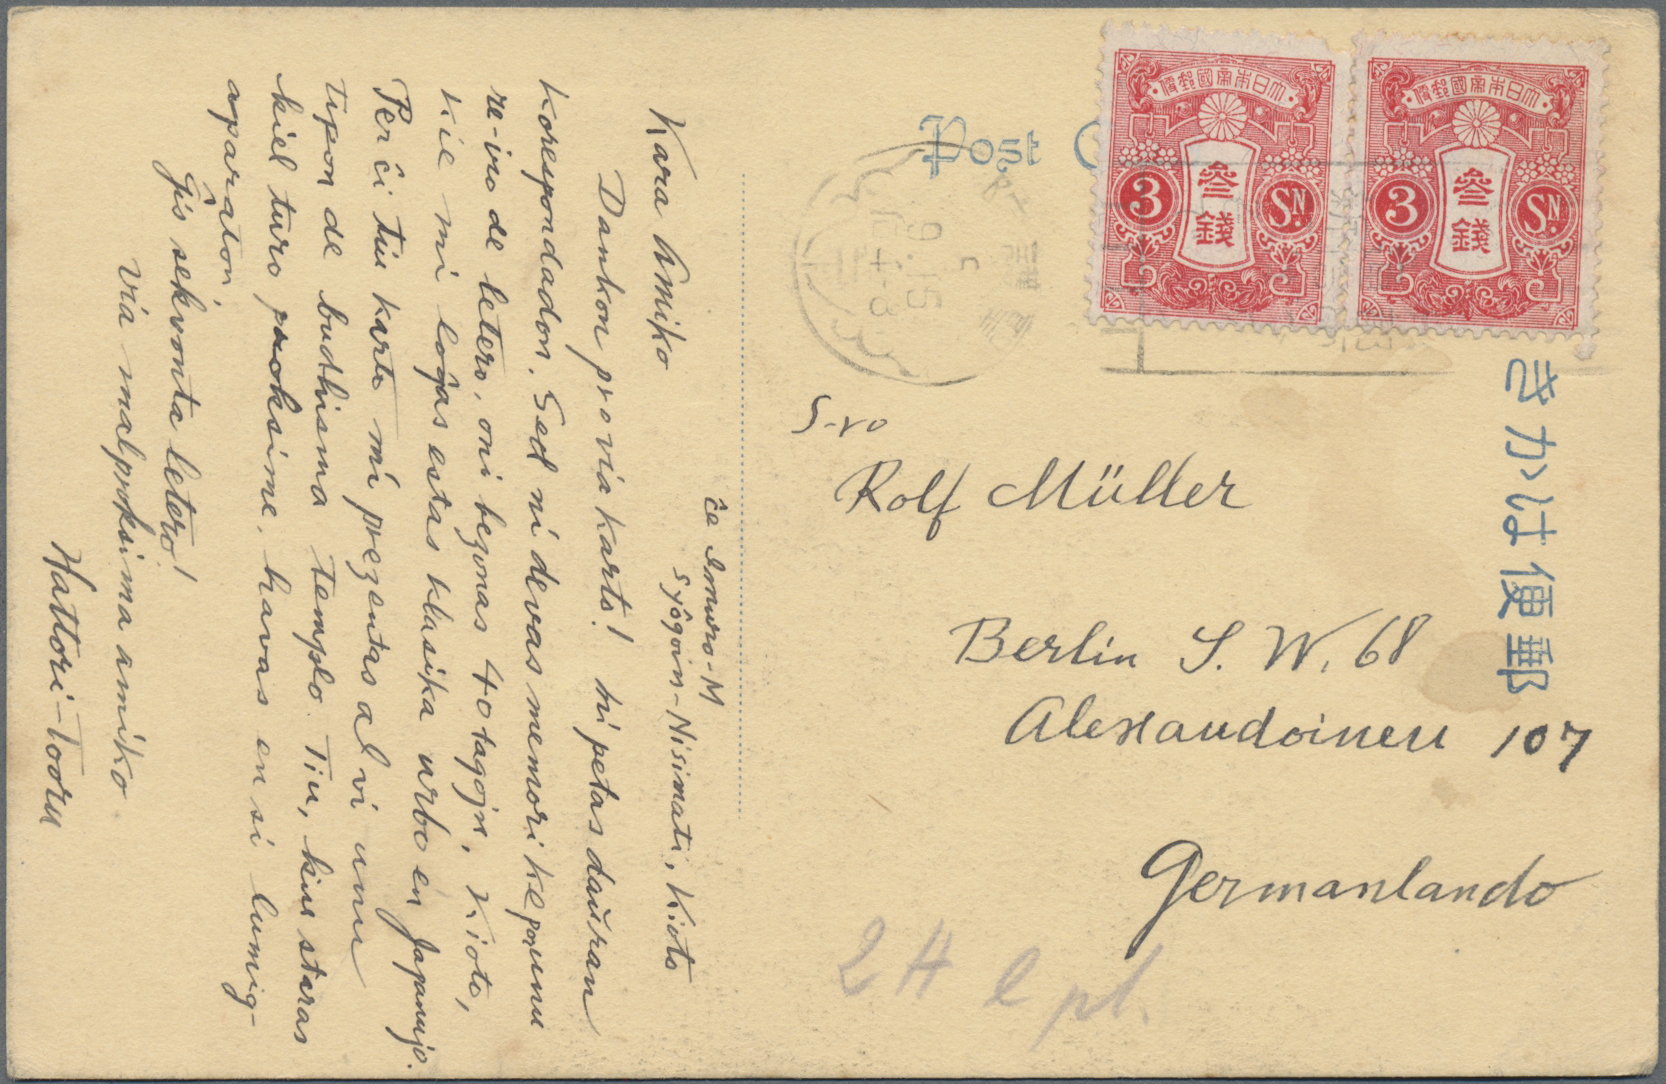 ĉe Imuro-M
Syôgoin-Nisimati, Kioto
Kara Amiko
Dankon pro via karto! Mi petas daŭran
korespondadon. Sed ni devas memori ke por unu
re-iro de letero, oni bezonas 40 tagojn. Kioto,
kie mi loĝas estas klasika urbo en Japanujo.
Per ĉi tiu karto mi prezentas al vi unu
tipon de budhisma templo. Tiu, kiu staras
kiel turo proksime, havas en si lumig-
aparaton
Ĝis sekvonta letero!
Via malproksima amiko
Hattori-Tooru
Post
大日本帝國郵便
3
SN.
参
錢
大日本帝國郵便
3
SN.
参
錢
9.15
きかは便郵
S-ro
Rolf Müller
Berlin S. W. 68
Alexandoinen 107
Germanlando
2 H l pl.